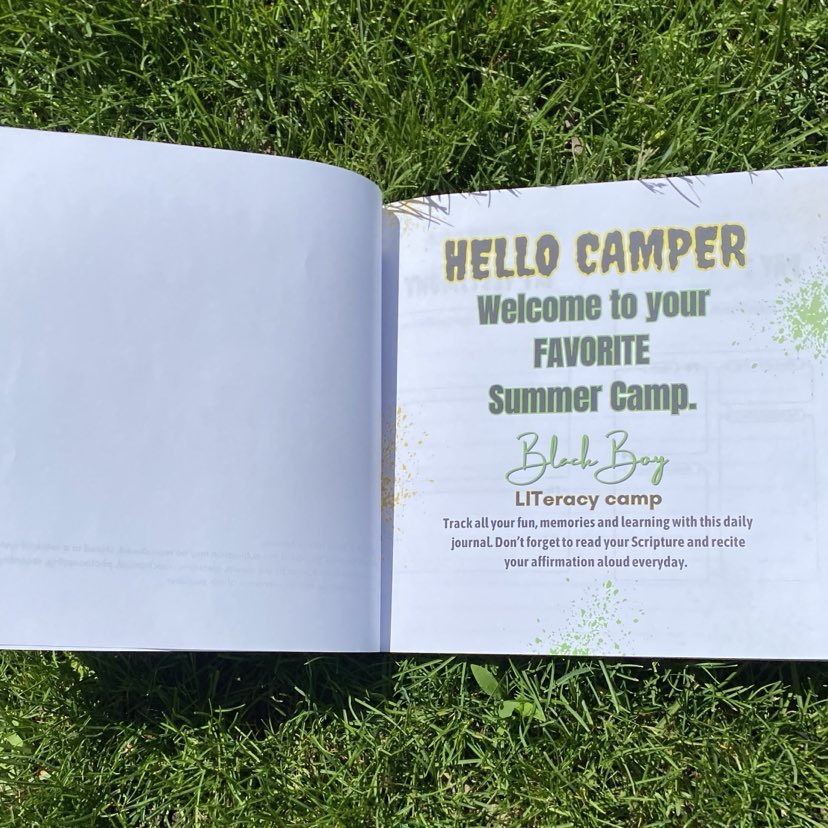 HELLO CAMPER
Welcome to your
FAVORITE
Summer Camp.
Black Boy
LITeracy camp
Track all your fun, memories and learning with this daily
journal. Don't forget to read your Scripture and recite
your affirmation aloud everyday.